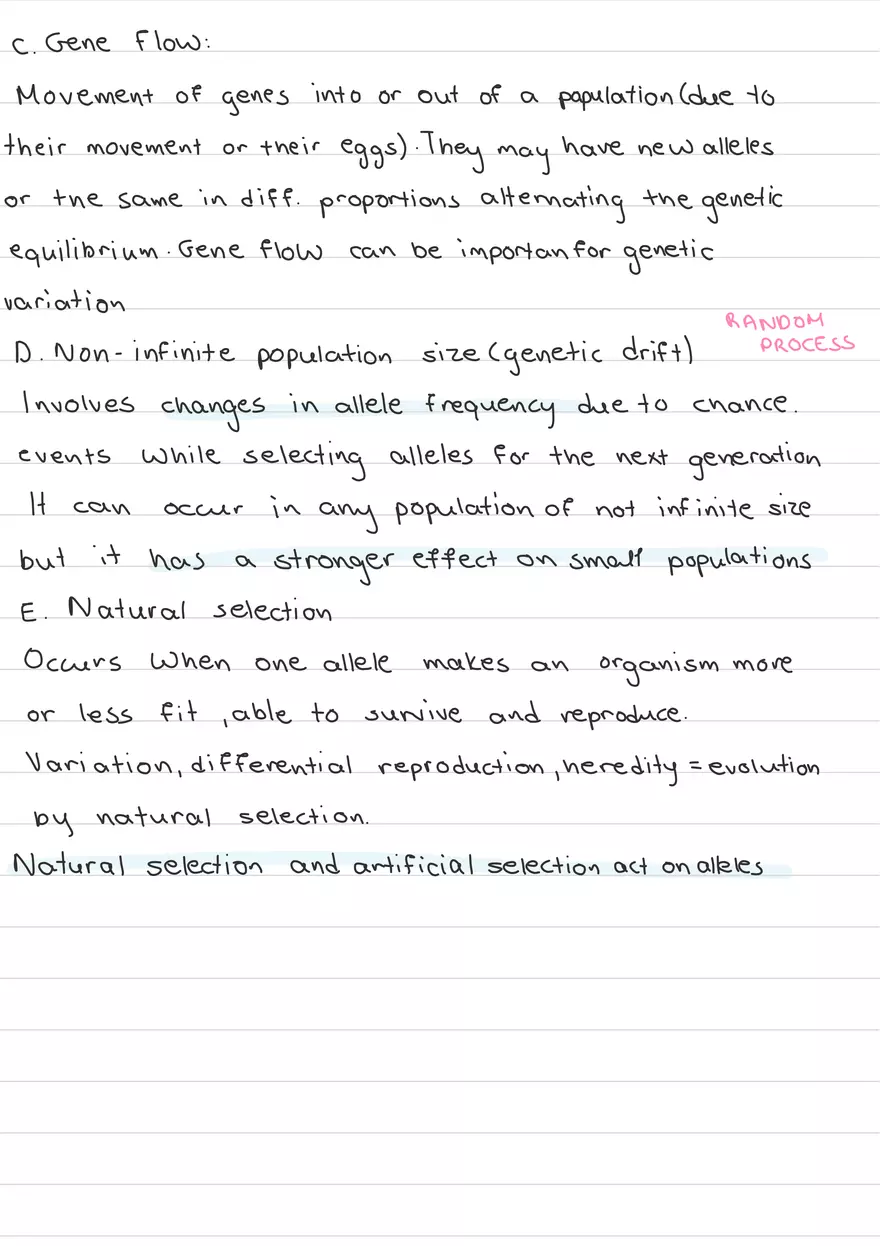 C. Gene Flow:
Movement of genes into or out of a population (due to
their movement or their eggs). They may have new alleles
or the same in diff. proportions alternating the genetic
equilibrium. Gene flow can be importan for genetic
variation
RANDOM
PROCESS
D. Non-infinite population size (genetic drift)
Involves changes in allele frequency due to chance.
events while selecting alleles for the next generation
It can occur in any population of not infinite size
but it has a stronger effect on small populations
E. Natural selection
Occurs when one allele makes an organism more
or less fit, able to survive and reproduce.
Variation, differential reproduction, heredity = evolution
by natural selection.
Natural selection and artificial selection act on alleles